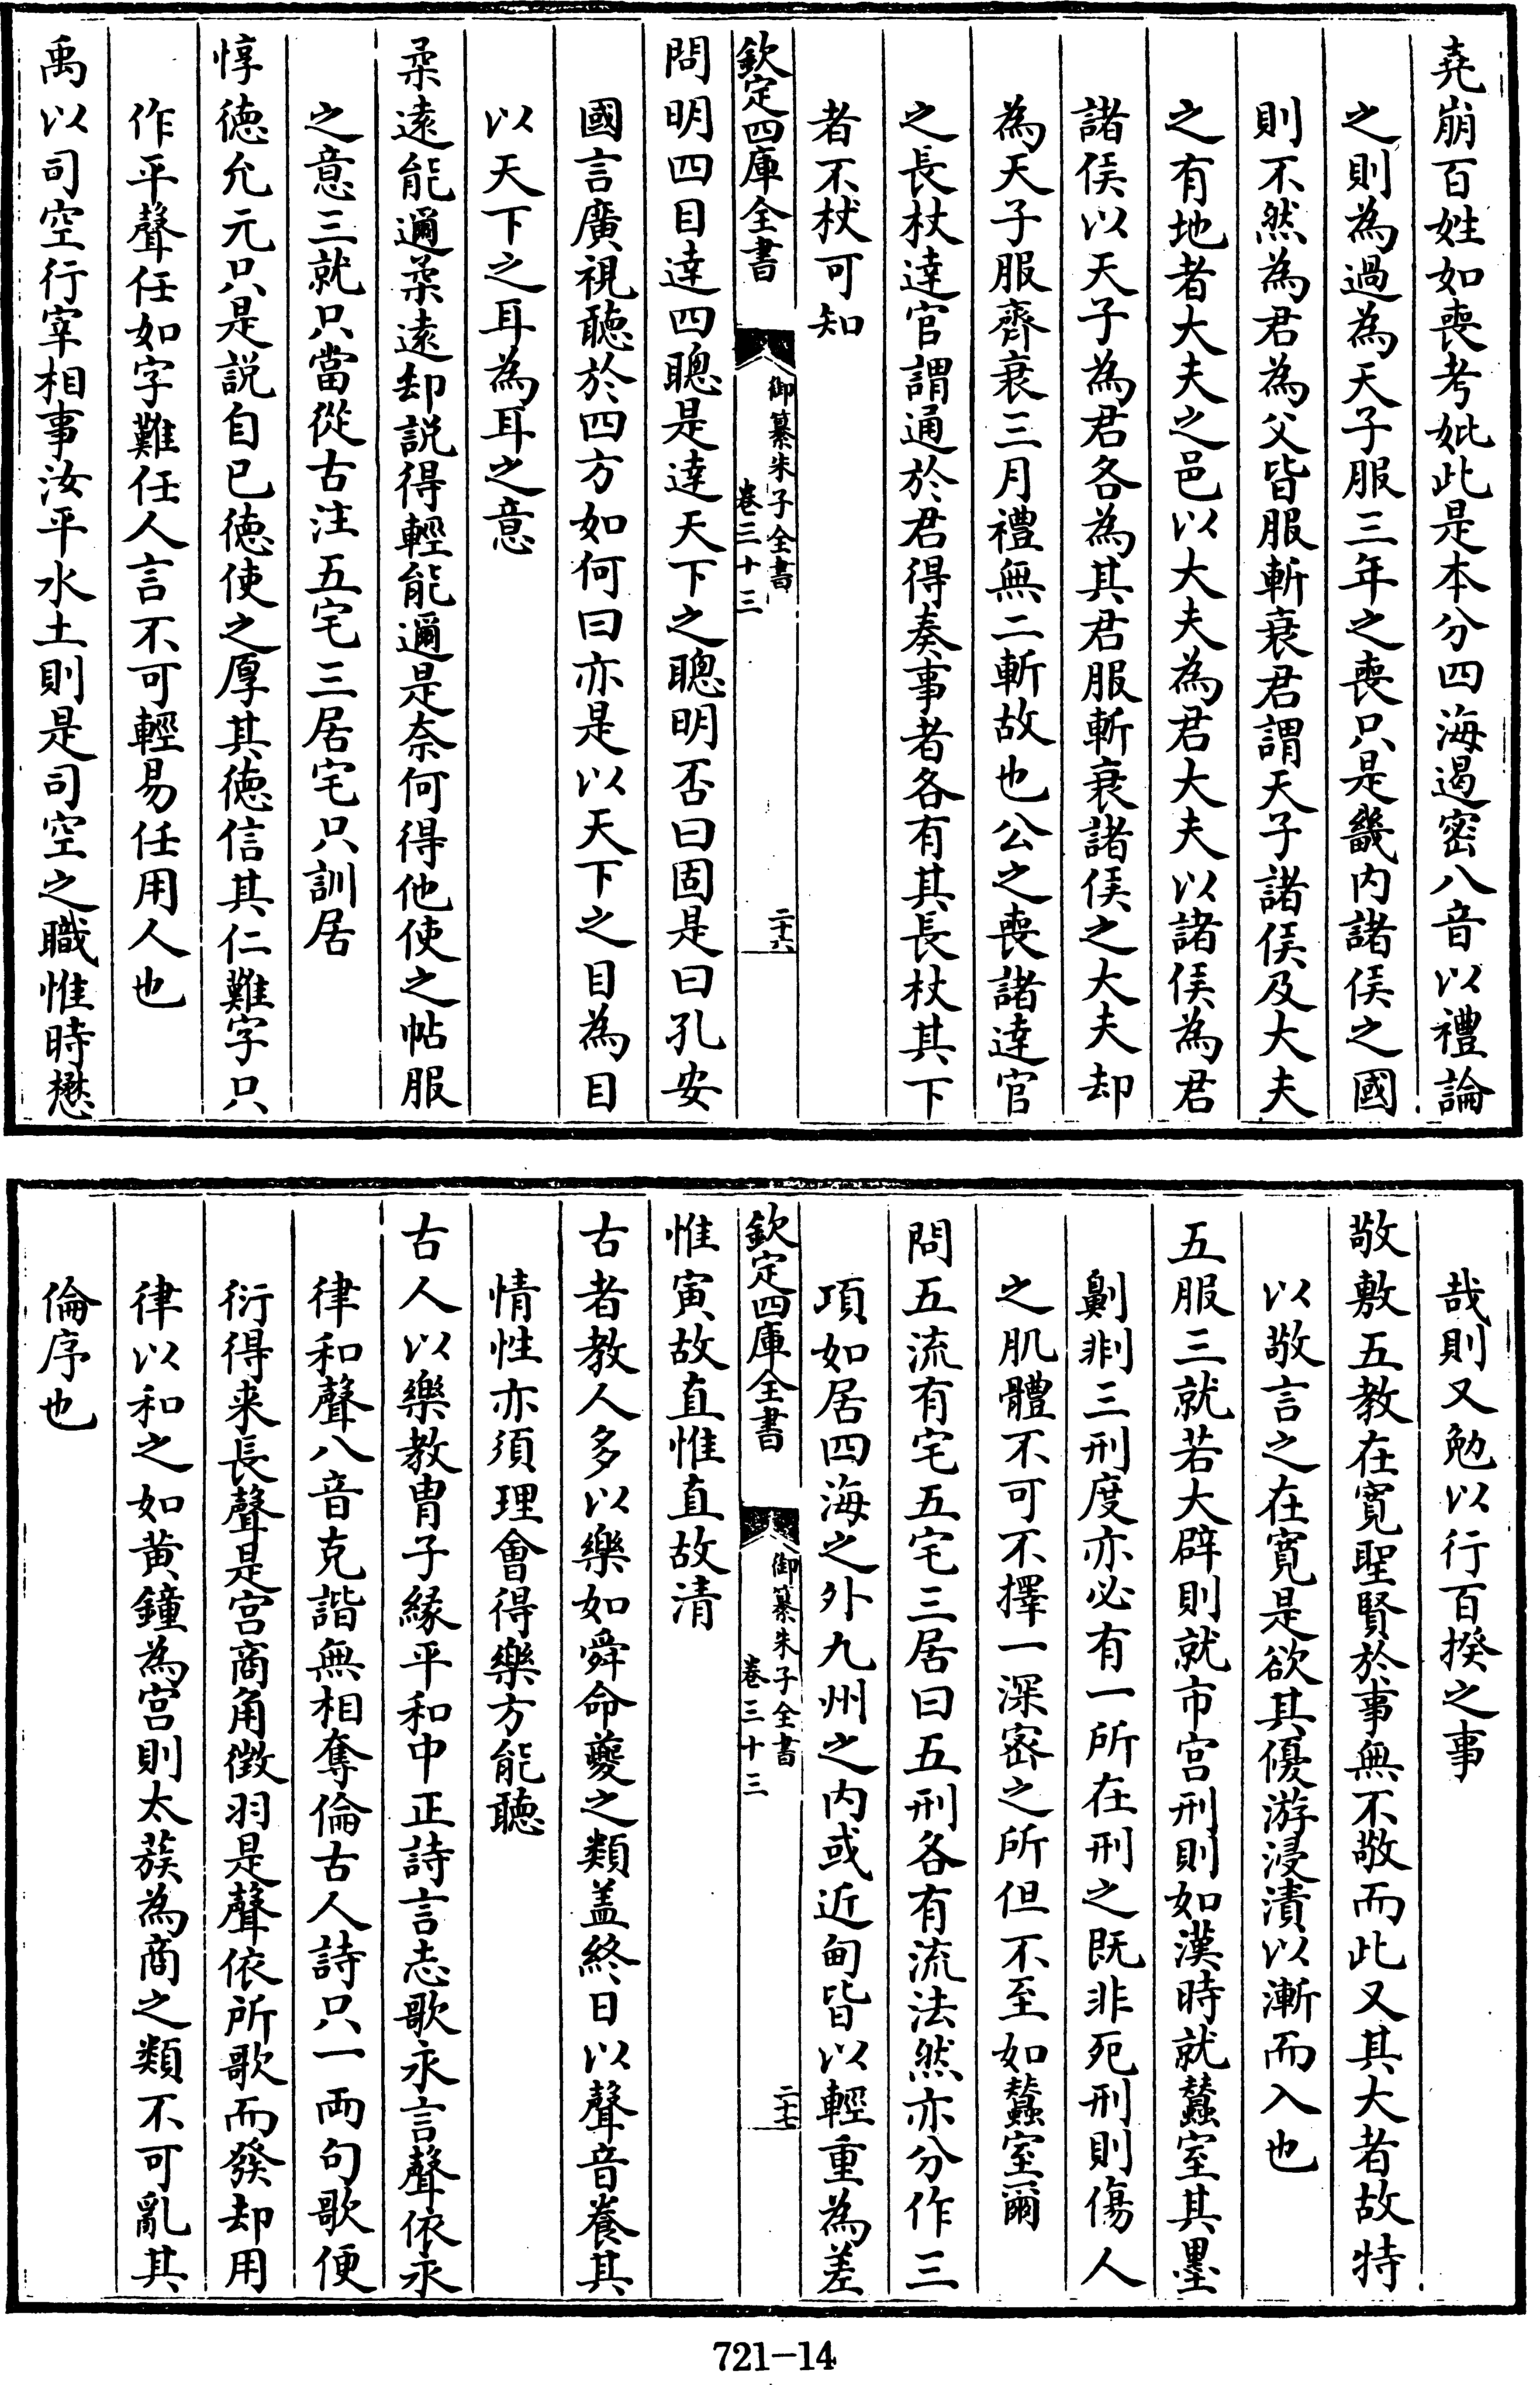 堯崩百姓如喪考妣此是本分四海遏密八音以禮論
之則為過為天子服三年之喪只是畿内諸侯之國
則不然為君為父皆服斬衰君謂天子諸侯及大夫
之有地者大夫之邑以大夫為君大夫以諸侯為君
諸侯以天子為君各為其君服斬衰諸侯之大夫却
為天子服齊衰三月禮無二斬故也公之喪諸達官
之長杖達官謂通於君得奏事者各有其長杖其下
者不杖可知
欽定四庫全書
御纂朱子全書
卷三十三
二十六
問明四目達四聰是達天下之聰明否曰固是曰孔安
國言廣視聽於四方如何曰亦是以天下之目為目
以天下之耳為耳之意
柔遠能邇柔遠却說得輕能邇是奈何得他使之帖服
之意三就只當從古注五宅三居宅只訓居
惇德允元只是説自已德使之厚其德信其仁難字只
作平聲任如字難任人言不可輕易任用人也
禹以司空行宰相事汝平水土則是司空之職惟時懋
哉則又勉以行百揆之事
敬敷五教在寛聖賢於事無不敬而此又其大者故特
以敬言之在寛是欲其優游浸漬以漸而入也
五服三就若大辟則就市宫刑則如漢時就蠶室其墨
劓剕三刑度亦必有一所在刑之既非死刑則傷人
之肌體不可不擇一深密之所但不至如蠶室爾
問五流有宅五宅三居曰五刑各有流法然亦分作三
項如居四海之外九州之内或近甸皆以輕重為差
欽定四庫全書
御纂朱子全書
卷三十三
二十七
惟寅故直惟直故清
古者教人多以樂如舜命夔之類盖終日以聲音養其
情性亦須理會得樂方能聽
古人以樂教胄子緣平和中正詩言志歌永言聲依永
律和聲八音克諧無相奪倫古人詩只一兩句歌便
衍得来長聲是宫商角徵羽是聲依所歌而發却用
律以和之如黄鐘為宫則太蔟為商之類不可亂其
倫序也
721-14